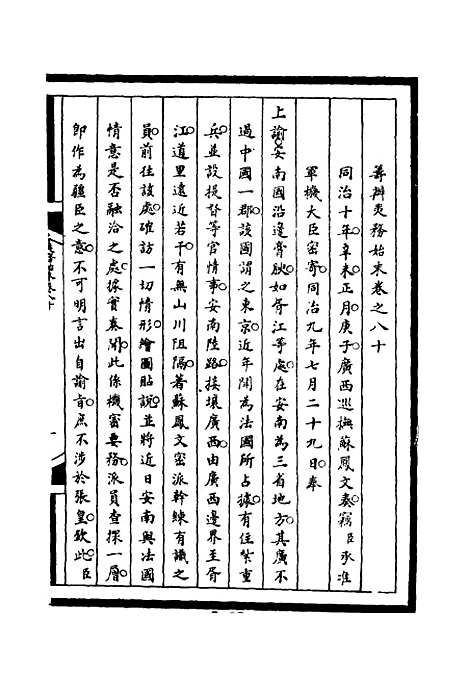 籌辦夷務始末卷之八十
同治十年辛未正月庚子廣西巡撫蘇鳳文奏竊臣承准
軍機大臣密寄同治九年七月二十九日奉
上諭安南國沿邊膏腴如胥江等處在安南為三省地方其廣不
過中國一郡該國謂之東京近年聞為法國所占據有住紮重
兵並設提督等官情事安南陸路接壤廣西由廣西邊界至胥
江道里遠近若干有無山川阻隔著蘇鳳文密派幹練有識之
員前往該處確訪一切情形繪圖貼說並將近日安南與法國
情意是否融洽之處據實奏聞此係機密要務派員查探一層
即作為疆臣之意不可明言出自諭旨庶不涉於張皇欽此臣